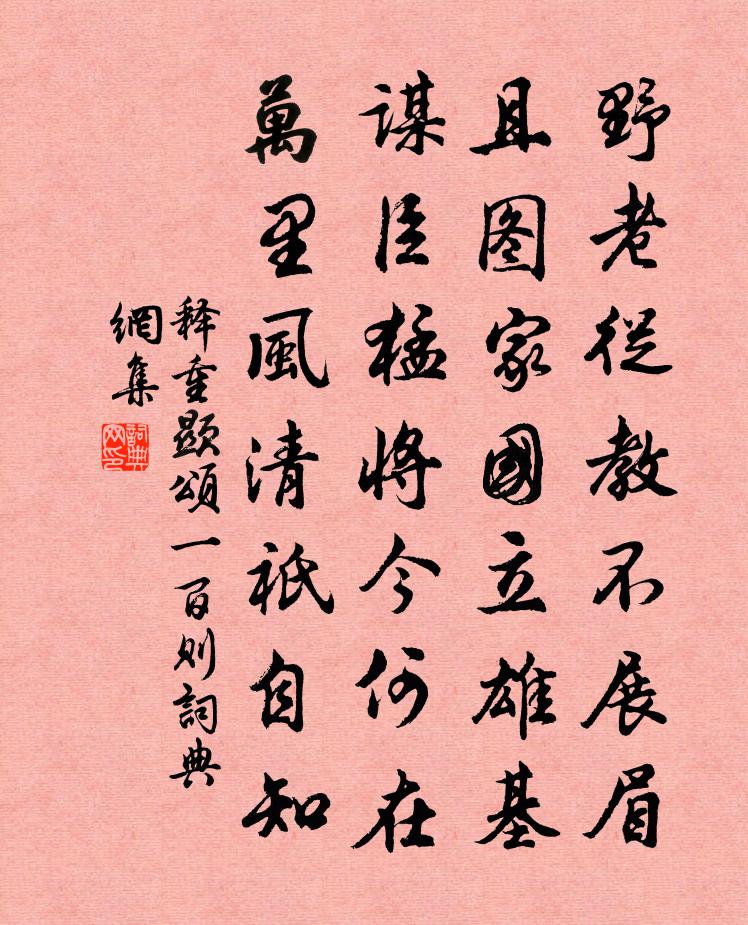 野老從教不展眉
且图家國立雄基
謀臣猛將今何在
萬里風清祇自知
释重顯頌一百则詞典
網集
詞典网印